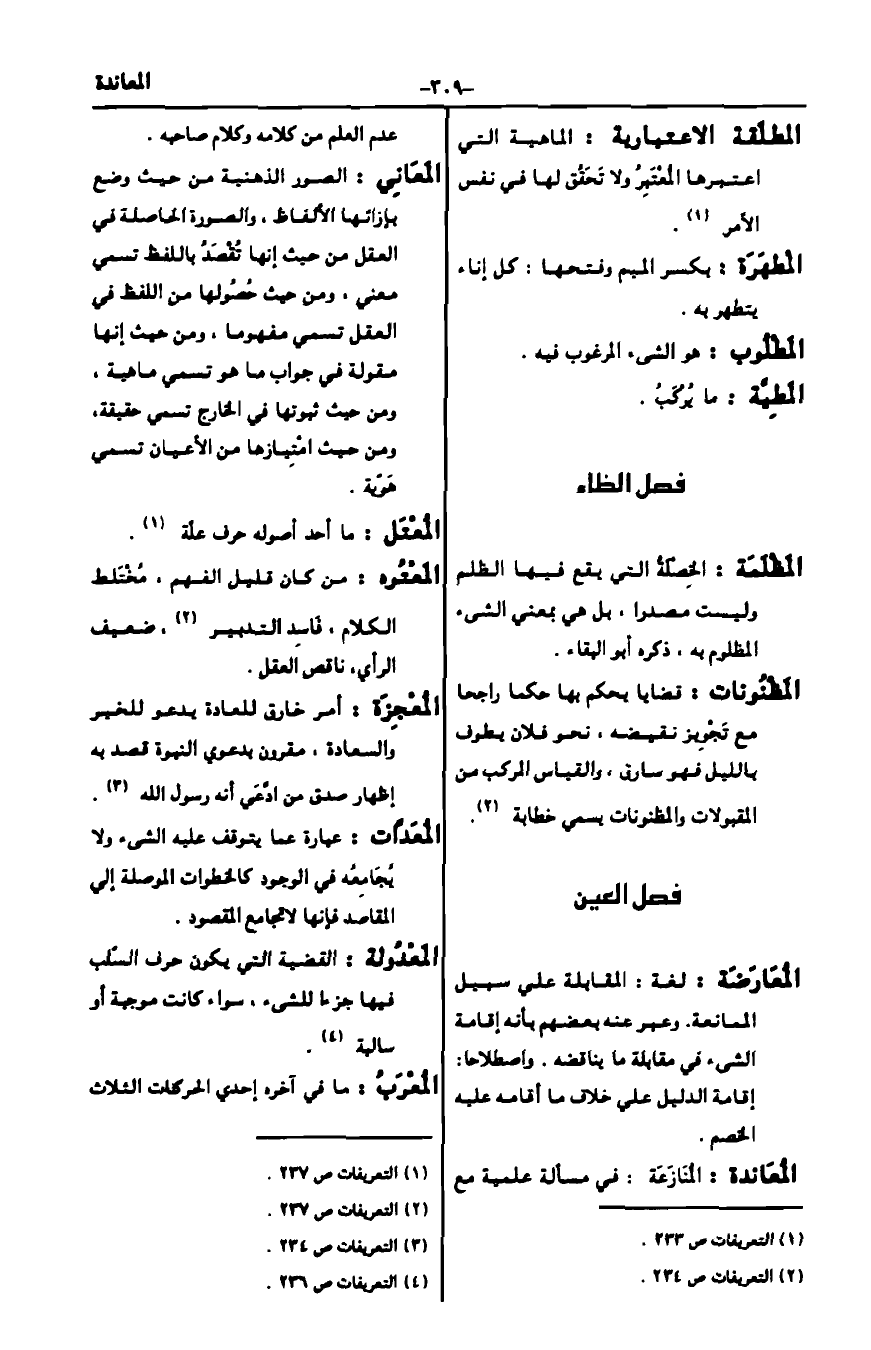 المعاندة
-٣٠٩-
المطلّقة الاعتبارية : الماهية التي
اعتبرها المُعْتَبِرُ ولا تَحَقُّق لها في نفس
الأمر (١) .
المَطهَرَة : بكسر الميم وفتحها : كل إناء
يتطهر به .
المَطْلُوب : هو الشىء المرغوب فيه .
المَطِيَّة : ما يُرْكَبُ .
فصل الظاء
المَظْلَمَة : الخَصلَةُ التي يقع فيها الظلم
وليست مصدرا ، بل هي بمعني الشىء
المظلوم به ، ذكره أبو البقاء .
المَظْنُونات : قضايا يحكم بها حكما راجحا
مع تَجْوِيز نقيضه ، نحو فلان يطوف
بالليل فهو سارق ، والقياس المركب من
المقبولات والمظنونات يسمي خطابة (٢).
فصل العين
المُعَارَضَة : لغة : المقابلة علي سبيل
الممانعة. وعبر عنه بعضهم بأنه إقامة
الشىء في مقابلة ما يناقضه . واصطلاحا:
إقامة الدليل علي خلاف ما أقامه عليه
الخصم .
المُعَاندة : المُنَازَعَة : في مسألة علمية مع
(١) التعريفات ص ٢٣٣ .
(٢) التعريفات ص ٢٣٤ .
عدم العلم من كلامه وكلام صاحبه .
المَعَانِي : الصور الذهنية من حيث وضع
بإزائها الألفاظ ، والصورة الحاصلة في
العقل من حيث إنها تُقْصَدُ باللفظ تسمي
معني ، ومن حيث حُصُولها من اللفظ في
العقل تسمي مفهوما ، ومن حيث إنها
مقولة في جواب ما هو تسمي ماهية ،
ومن حيث ثبوتها في الخارج تسمي حقيقة،
ومن حيث امْتِيازها من الأعيان تسمي
هَوّية .
المُعْتَل : ما أحد أصوله حرف علّة (١) .
المَعْتُوه : من كان قليل الفهم ، مُخْتَلط
الكلام ، فَاسِد التدبير (٢) ، ضعيف
الرأي، ناقص العقل .
المُعْجِزَة : أمر خارق للعادة يدعو للخير
والسعادة ، مقرون بدعوي النبوة قصد به
إظهار صدق من ادَّعَي أنه رسول الله (٣) .
المُعَدّات : عبارة عما يتوقف عليه الشىء ولا
يُجَامِعُه في الوجود كالخطوات الموصلة إلي
المقاصد فإنها لاتجامع المقصود .
المَعْدُولة : القضية التي يكون حرف السَّلب
فيها جزءا للشىء ، سواء كانت موجبة أو
سالبة (٤) .
المُعْرَبُ : ما في آخره إحدي الحركات الثلاث
(١) التعريفات ص ٢٣٧ .
(٢) التعريفات ص ٢٣٧ .
(٣) التعريفات ص ٢٣٤ .
(٤) التعريفات ص ٢٣٦ .